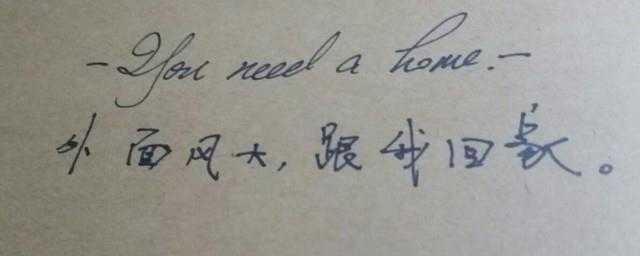 -You need a home.-
外面风大,跟我回家。